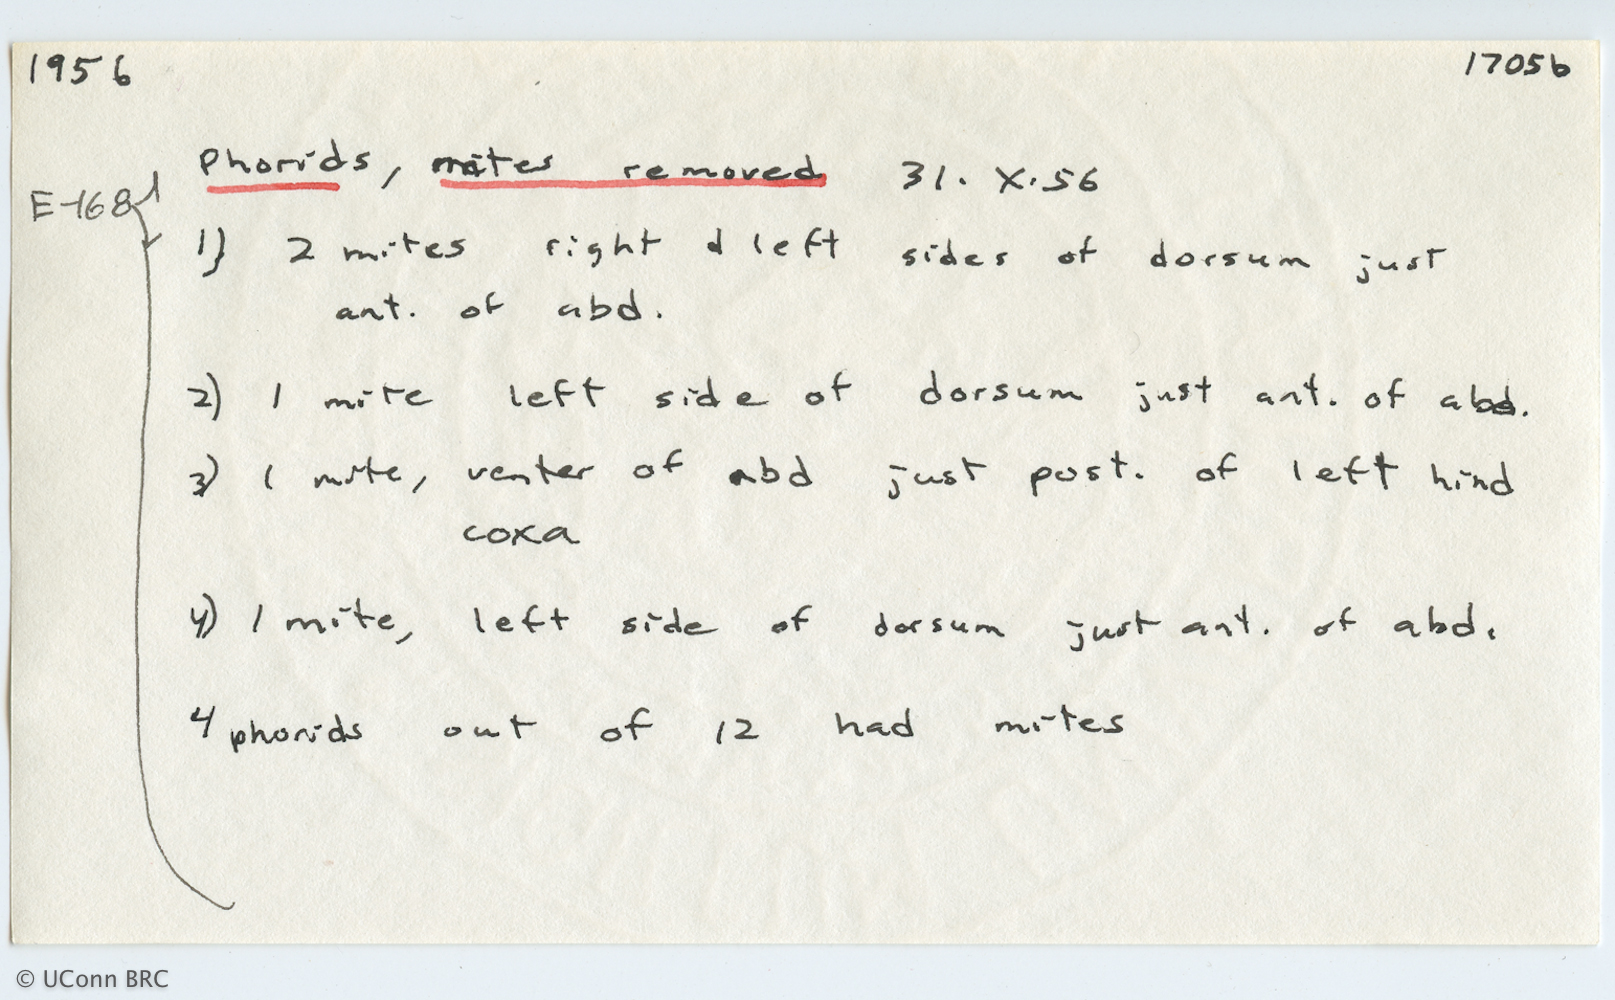 1956
17056
Phorids, mites removed 31. X. 56
E-168
1) 2 mites right & left sides of dorsum just
ant. of abd.
2) 1 mite left side of dorsum just ant. of abd.
3) 1 mite, venter of abd just post. of left hind
coxa
4) 1 mite, left side of dorsum just ant. of abd.
4 phorids out of 12 had mites
© UConn BRC